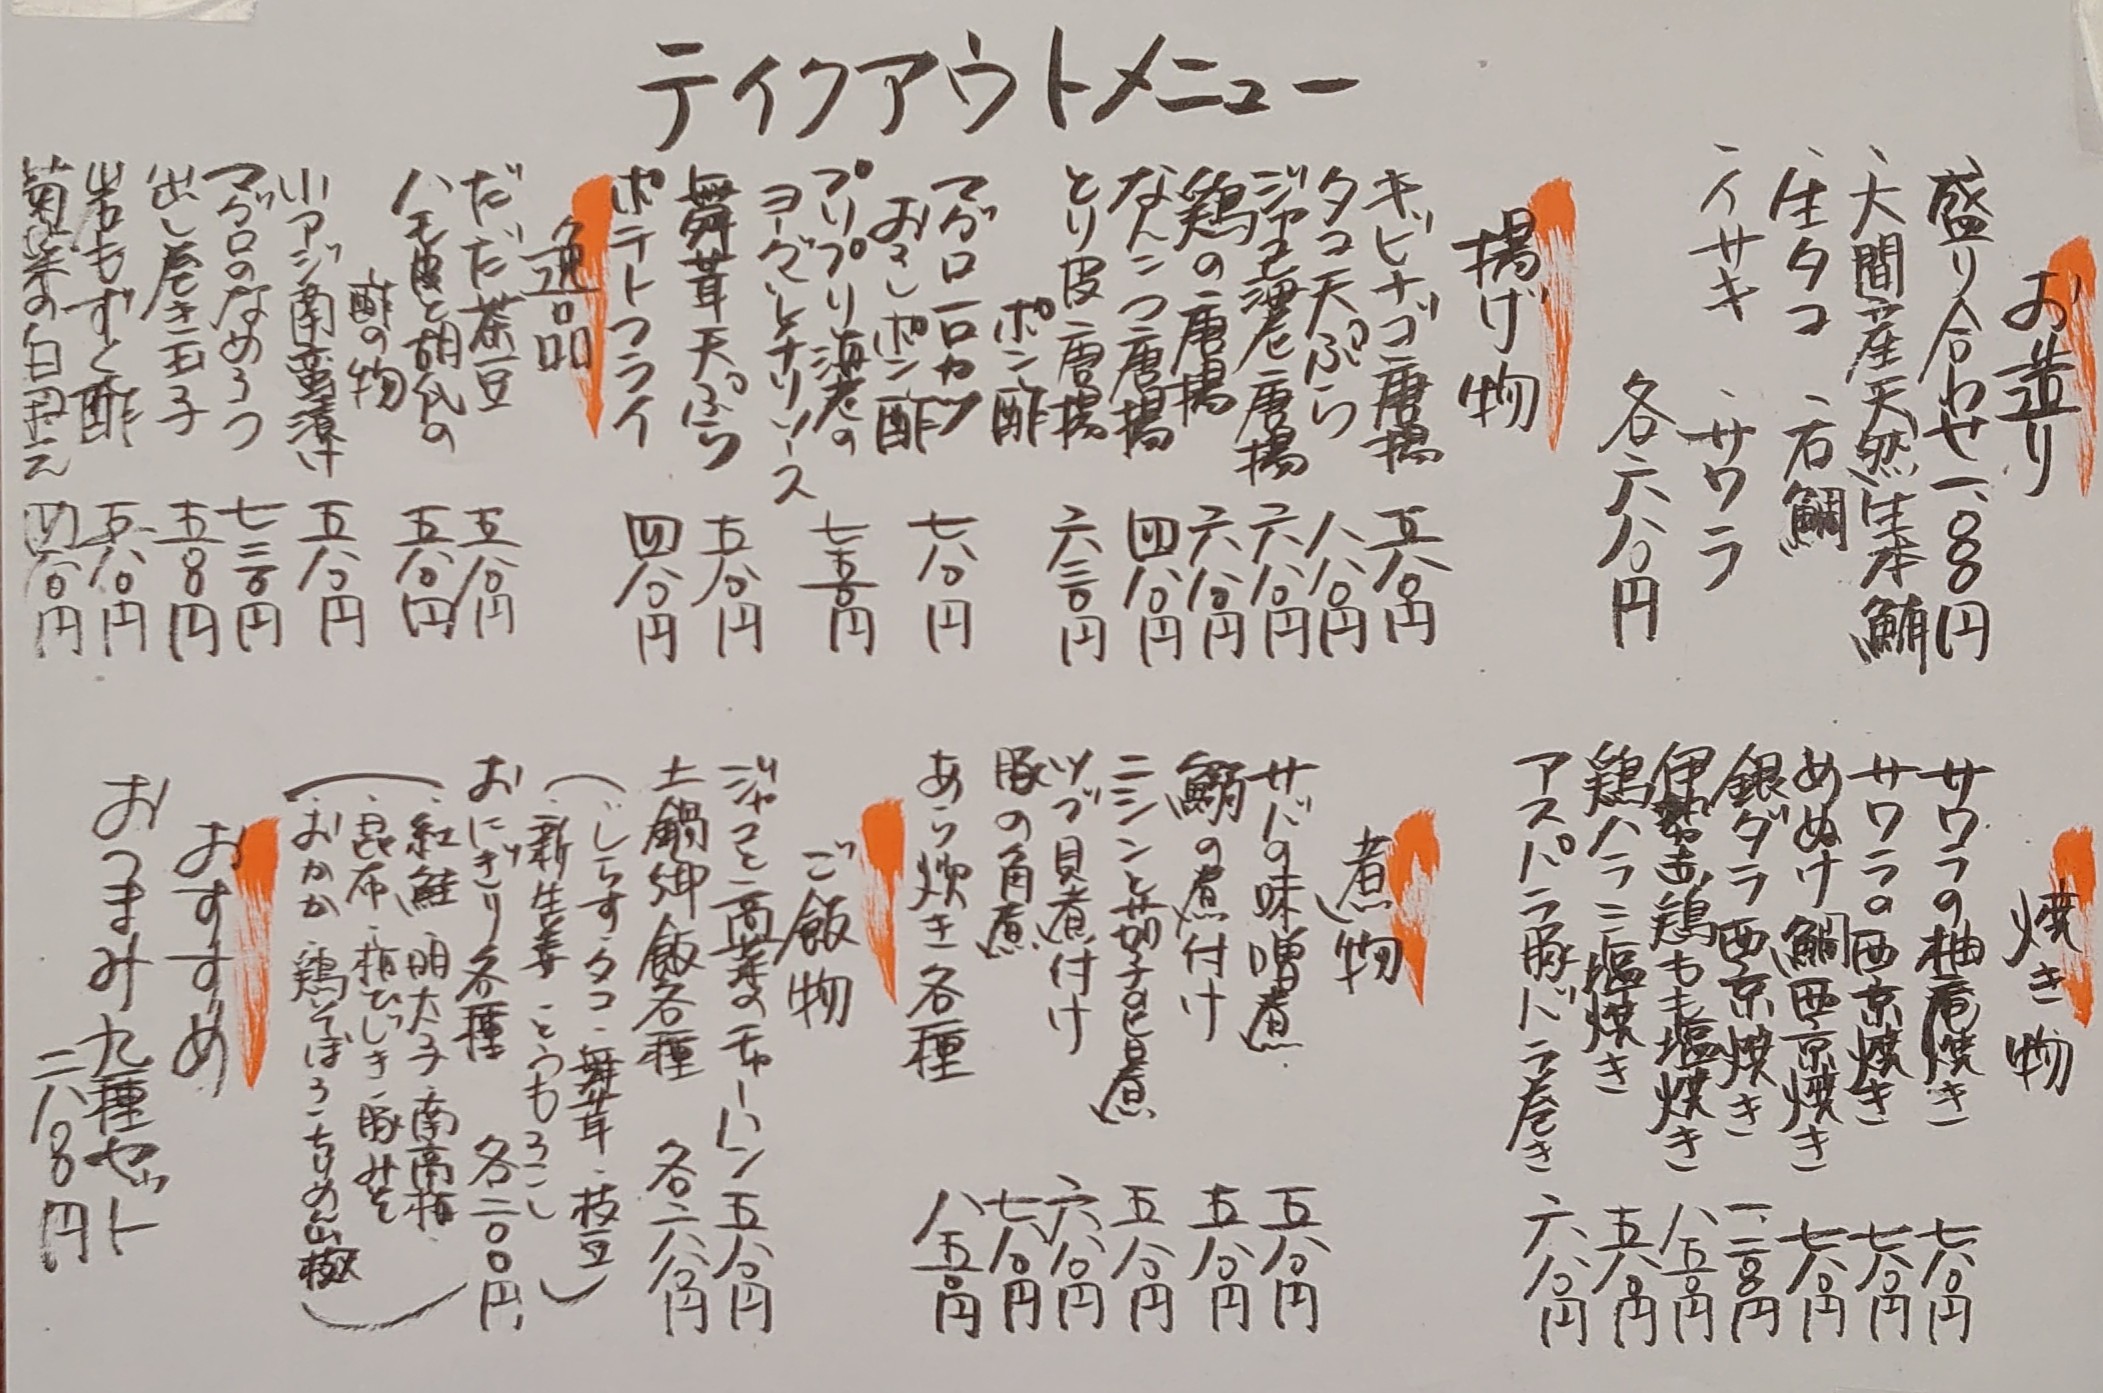 ティクアウトメニュー
お造り
盛り合わせ 一、八〇〇円
、大間産天然生本鮪
、生タコ 、石鯛
、イサキ 、サワラ
各六八〇円
揚げ物
キビナゴ唐揚 五八〇円
タコ天ぷら 八八〇円
唐揚 六八〇円
鶏の唐揚 六八〇円
なんこつ唐揚 四八〇円
とり皮唐揚
ポン酢 六三〇円
マグロ一口カツ
おろしポン酢 七八〇円
プリプリ海老の
ヨーグルトチリソース 七五〇円
舞茸天ぷら 五八〇円
ポテトフライ 四八〇円
逸品
だだ茶豆 五八〇円
ハモ皮と胡瓜の
酢の物 五八〇円
小アジ南蛮漬け 五八〇円
マグロのなめろう 七三〇円
出し巻き玉子 五五〇円
岩もずく酢 五八〇円
菊菜の白和え 四八〇円
焼き物
サワラの柚庵焼き 七八〇円
サワラの西京焼き 七八〇円
めぬけ鯛西京焼き 七八〇円
銀ダラ西京焼き 一、二〇〇円
伊達鶏もも塩焼き 八五〇円
鶏ハラミ塩焼き 五八〇円
アスパラ豚バラ巻き 六八〇円
煮物
サバの味噌煮 五八〇円
鰯の煮付け 五八〇円
ニシンと茄子の煮 五八〇円
ツブ貝煮付け 六八〇円
豚の角煮 七八〇円
あら炊き各種 八五〇円
ご飯物
ジャコと高菜のチャーハン 五八〇円
土鍋御飯各種 各二六八〇円
（しらす・タコ・舞茸・枝豆
・新生姜・とうもろこし）
おにぎり各種 各二〇〇円
（・紅鮭・明太子・南高梅
・昆布・梅ひじき・豚みそ
・おかか・鶏そぼろ・ちりめん山椒）
おすすめ
おつまみ九種セット
二八〇〇円